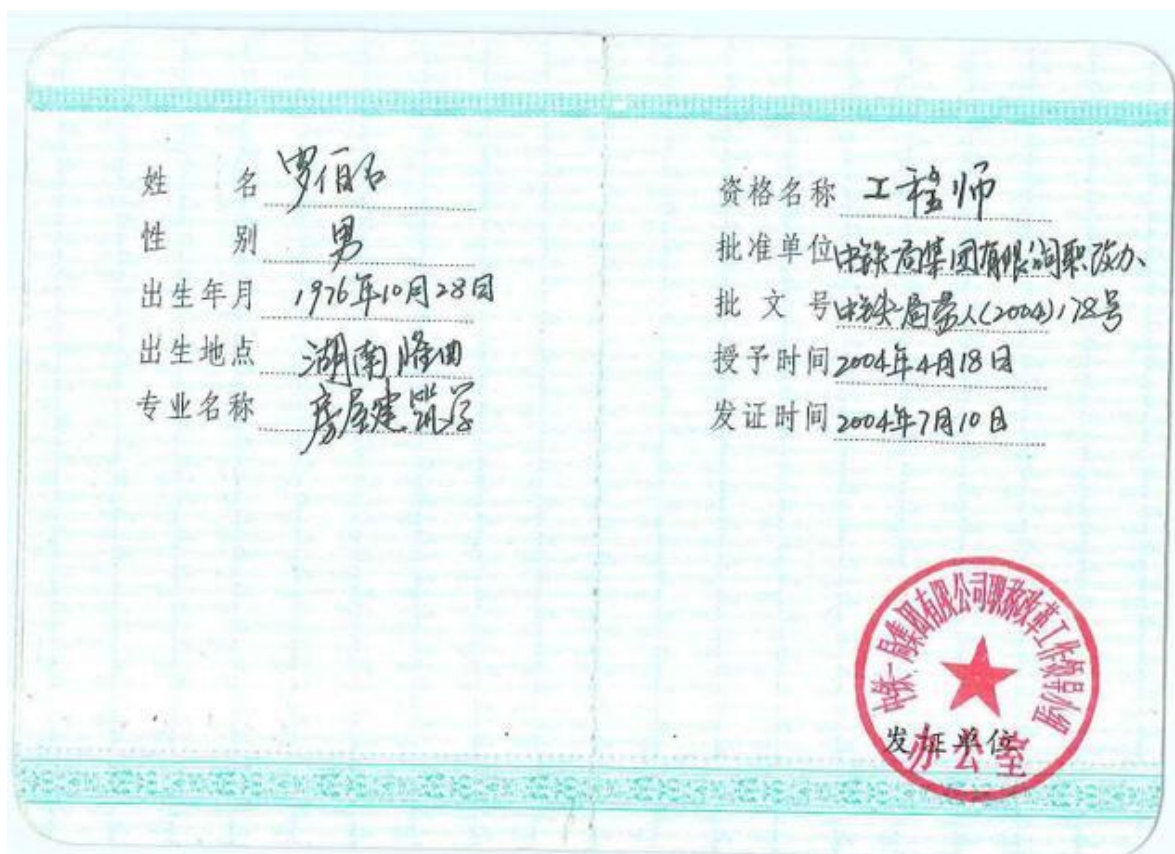 姓 名 罗佰石
性 别 男
出生年月 1976年10月28日
出生地点 湖南隆回
专业名称 房屋建筑学
资格名称 工程师
批准单位 中铁一局集团有限公司职改办
批文号 中铁一局劳人(2004)178号
授予时间 2004年4月18日
发证时间 2004年7月10日
中铁一局集团有限公司职称改革工作领导小组
发证单位
办公室